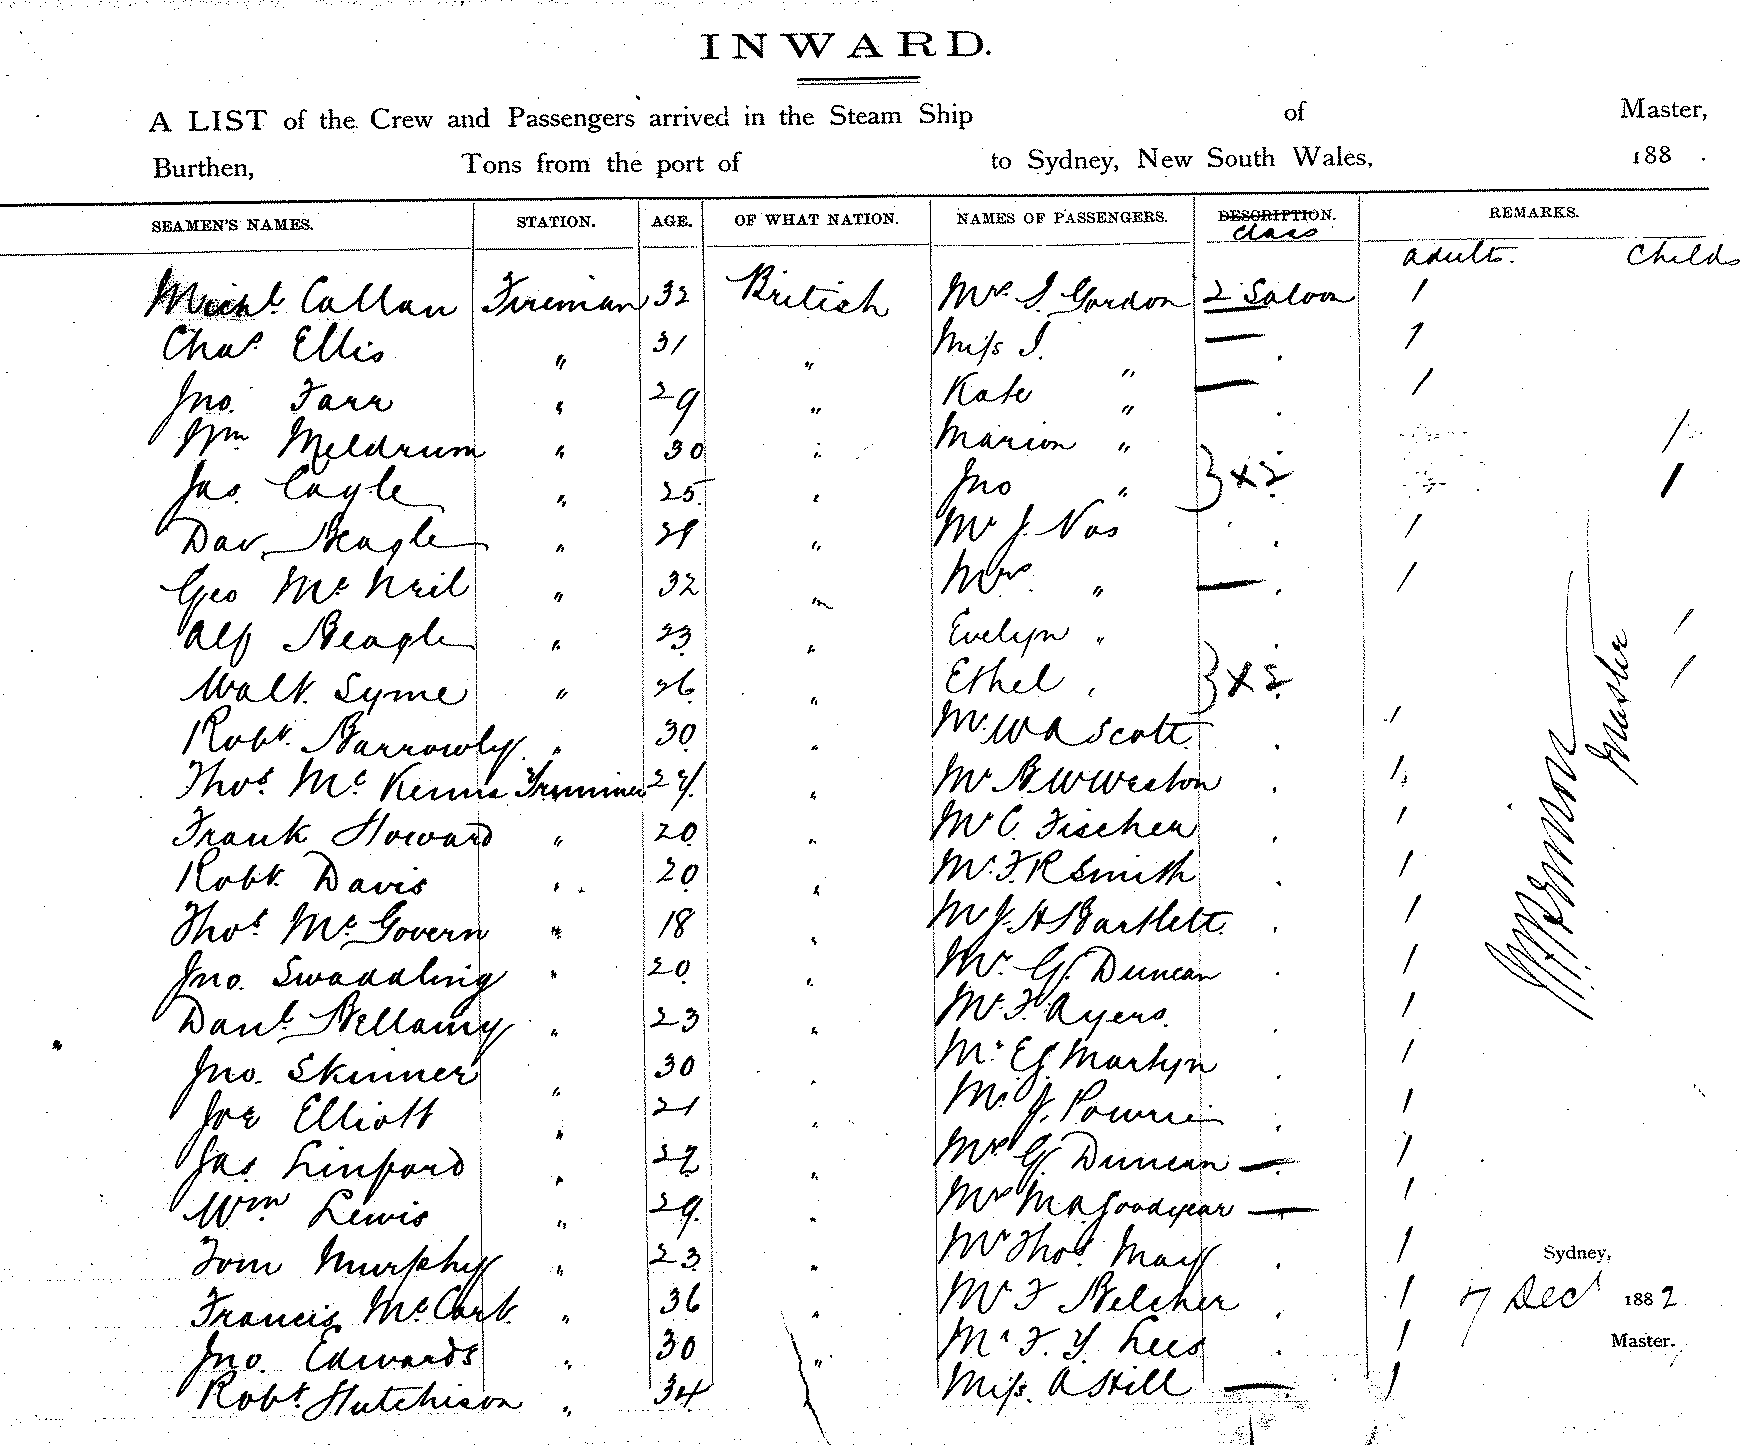 INWARD.
A LIST of the Crew and Passengers arrived in the Steam Ship of Master,
Burthen, Tons from the port of to Sydney, New South Wales, 188 .
SEAMEN'S NAMES. STATION. AGE. OF WHAT NATION. NAMES OF PASSENGERS. DESCRIPTION. REMARKS.
Class adults. Childs
Michl. Callan Fireman 32 British Mrs. I. Gordon 2 Saloon 1
Chas. Ellis " 31 " Miss I. " — 1
Jno. Farr " 29 " Kate " — 1
Wm Meldrum " 30 " Marion " 1
Jas. Cagle " 25 " Jno " } x 2 1
Dav. Beagle " 29 " Mr J. Vos 1
Geo McNeil " 32 " Mrs. " — 1
Alf Beagle " 23 " Evelyn " 1
Walt. Syme " 26 " Ethel " } x 2 1
Robt. Barrowly " 30 " Mr. W A Scott 1
Thos. Mc Kenna Trimmer 24 " Mr B W Weston 1
Frank Howard " 20 " Mr C. Fischer 1
Robt. Davis " 20 " Mr. F. R Smith 1
Thos. McGovern " 18 " Mr J. H Bartlett 1
Jno. Swaddling " 20 " Mr. G. Duncan 1
Danl. Bellamy " 23 " Mr. F. Ayers. 1
Jno. Skinner " 30 " Mr. E G Martyn 1
Joe Elliott " 21 " Mr. J. Powrie 1
Jas. Linford " 22 " Mrs G. Duncan — 1
Wm Lewis " 29 " Mrs M A Goodyear — 1
Tom Murphy " 23 " Mr Thos. May 1
Francis McCart. " 36 " Mr F Belcher 1
Jno. Edwards " 30 " Mr F. Y. Lees 1
Robt. Hutchison " 34 Miss. A Hill — 1
Master
Sydney,
7 Decr 1882
Master.